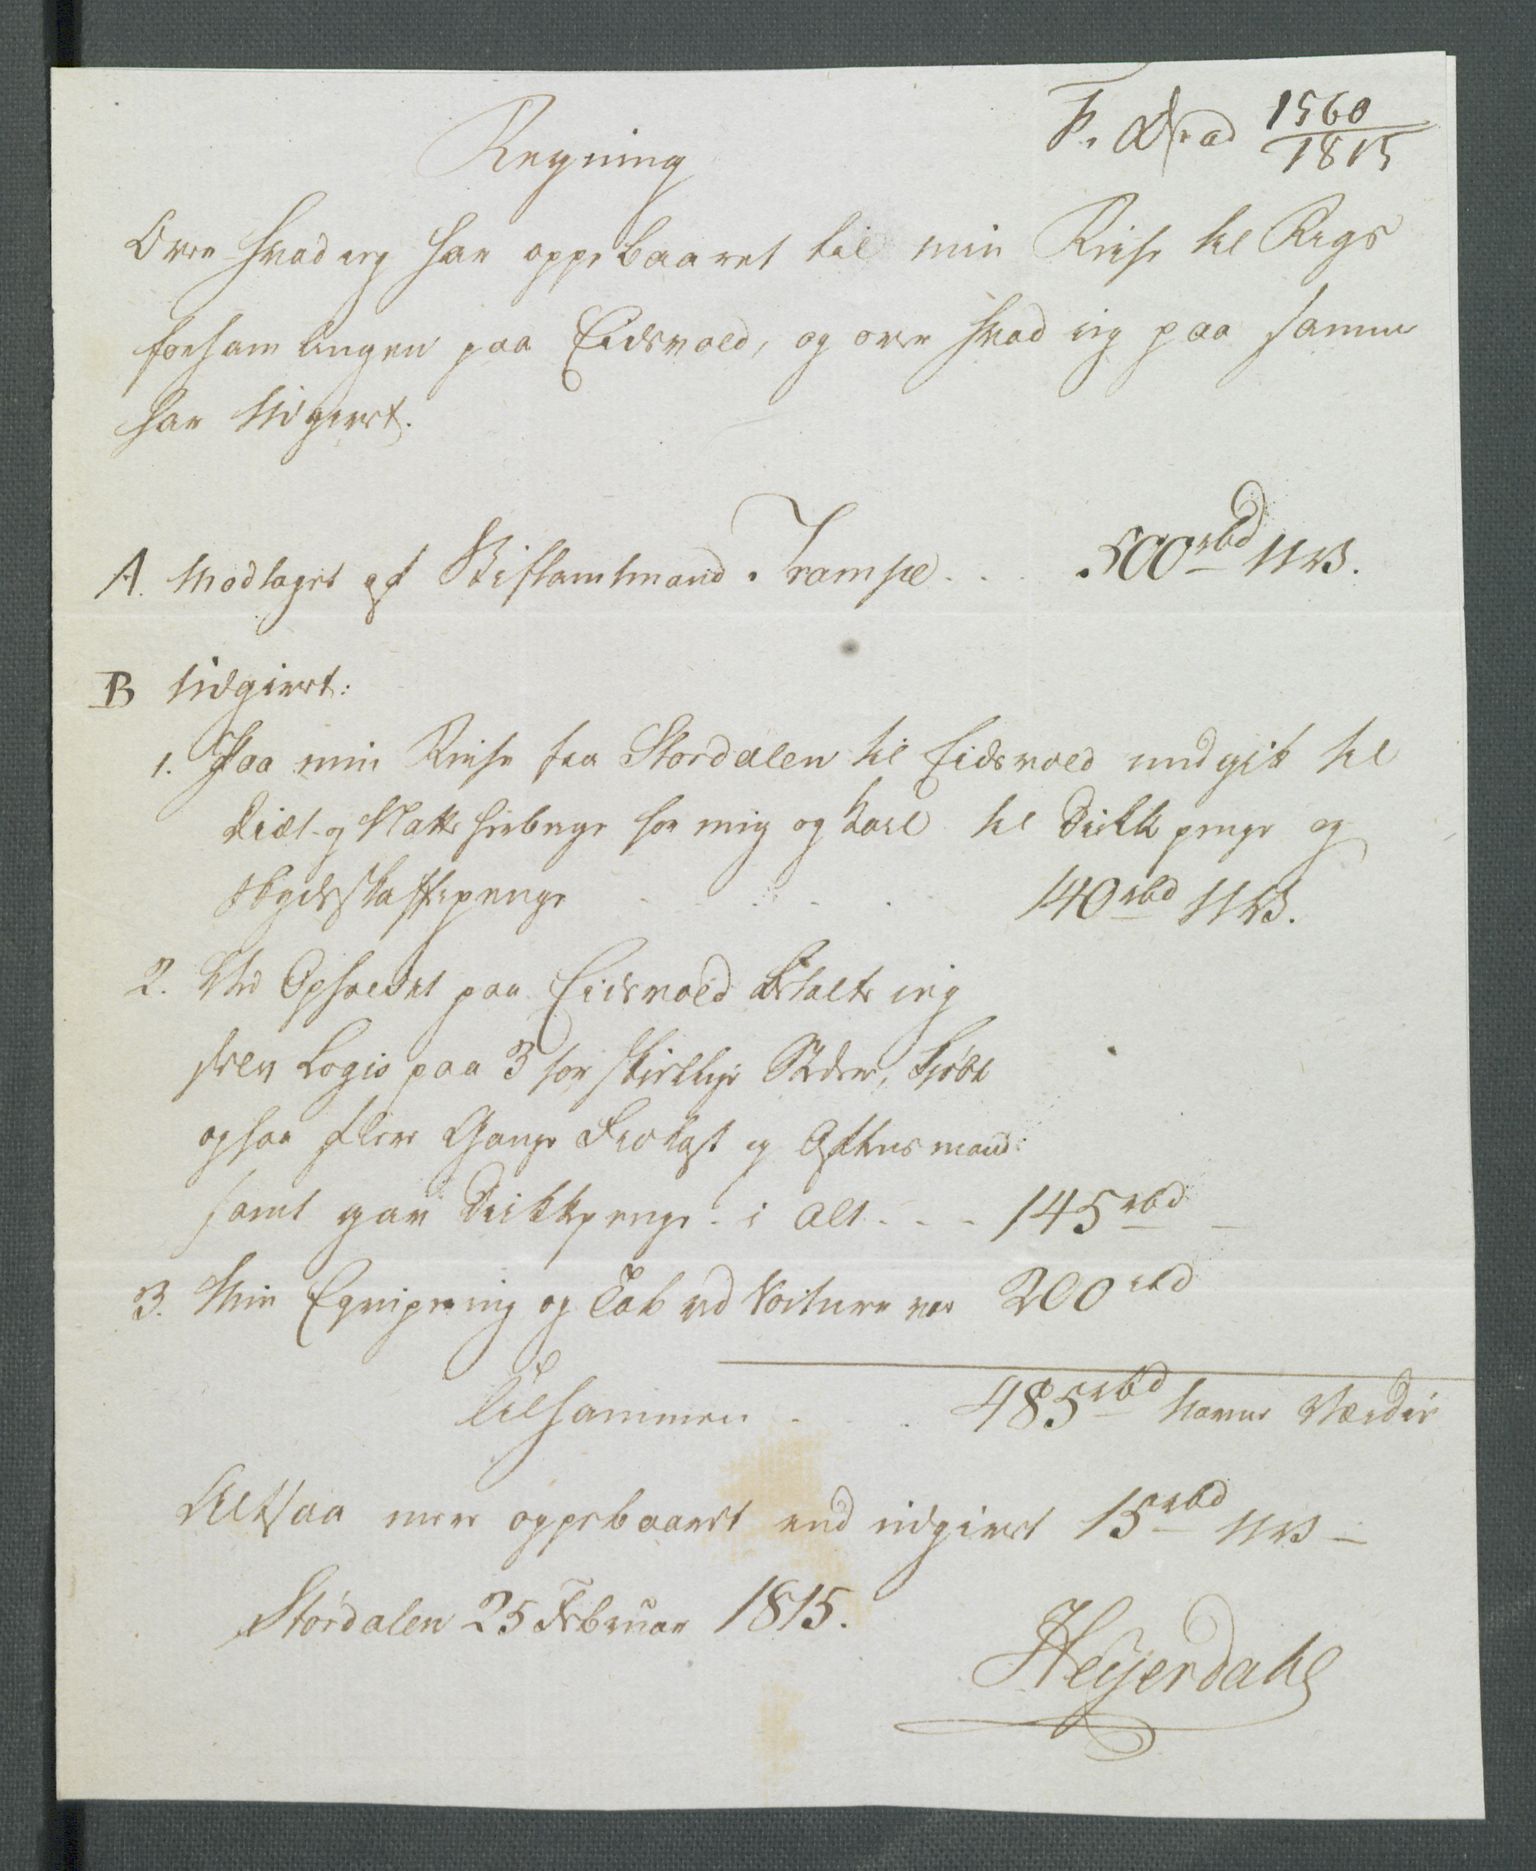 F. Dp. ad 1560/1815
Regning
Over hvad jeg har oppebaaret til min Reise til Rigs
forsamlingen paa Eidsvold, og over hvad jeg paa samme
har Udgivet.
A. Modtaget af Stiftamtmand Trampe . . . 500 rbd NV.
B Udgivet:
1. Paa min Reise fra Stordalen til Eidsvold medgik til
Diæt og Natteherberge for mig og Karl til Drikkepenge og
Skydsskaffepenge . . . . . 140 rbd NV.
2. Ved Opholdet paa Eidsvold betalte jeg
selv Logis paa 3 forskiellige Stæder, kjøbte
ogsaa flere Gange Frokost og Aftensmad:
samt gav Drikkepenge - i alt . . . 145 rbd -
3. Min Eqvipering og Tab ved Voiture var 200 rbd
Tilsammen . . . 485 rbd Navne Værdie
Altsaa mere oppebaaret end udgivet 15 rbd NV -
Størdalen 25 Februar 1815.
Heyerdahl